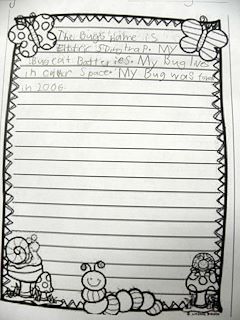 The Bug's Name is
My
Bug eat Batteries. My Bug lives
in outer Space. My Bug was found
in 2006.